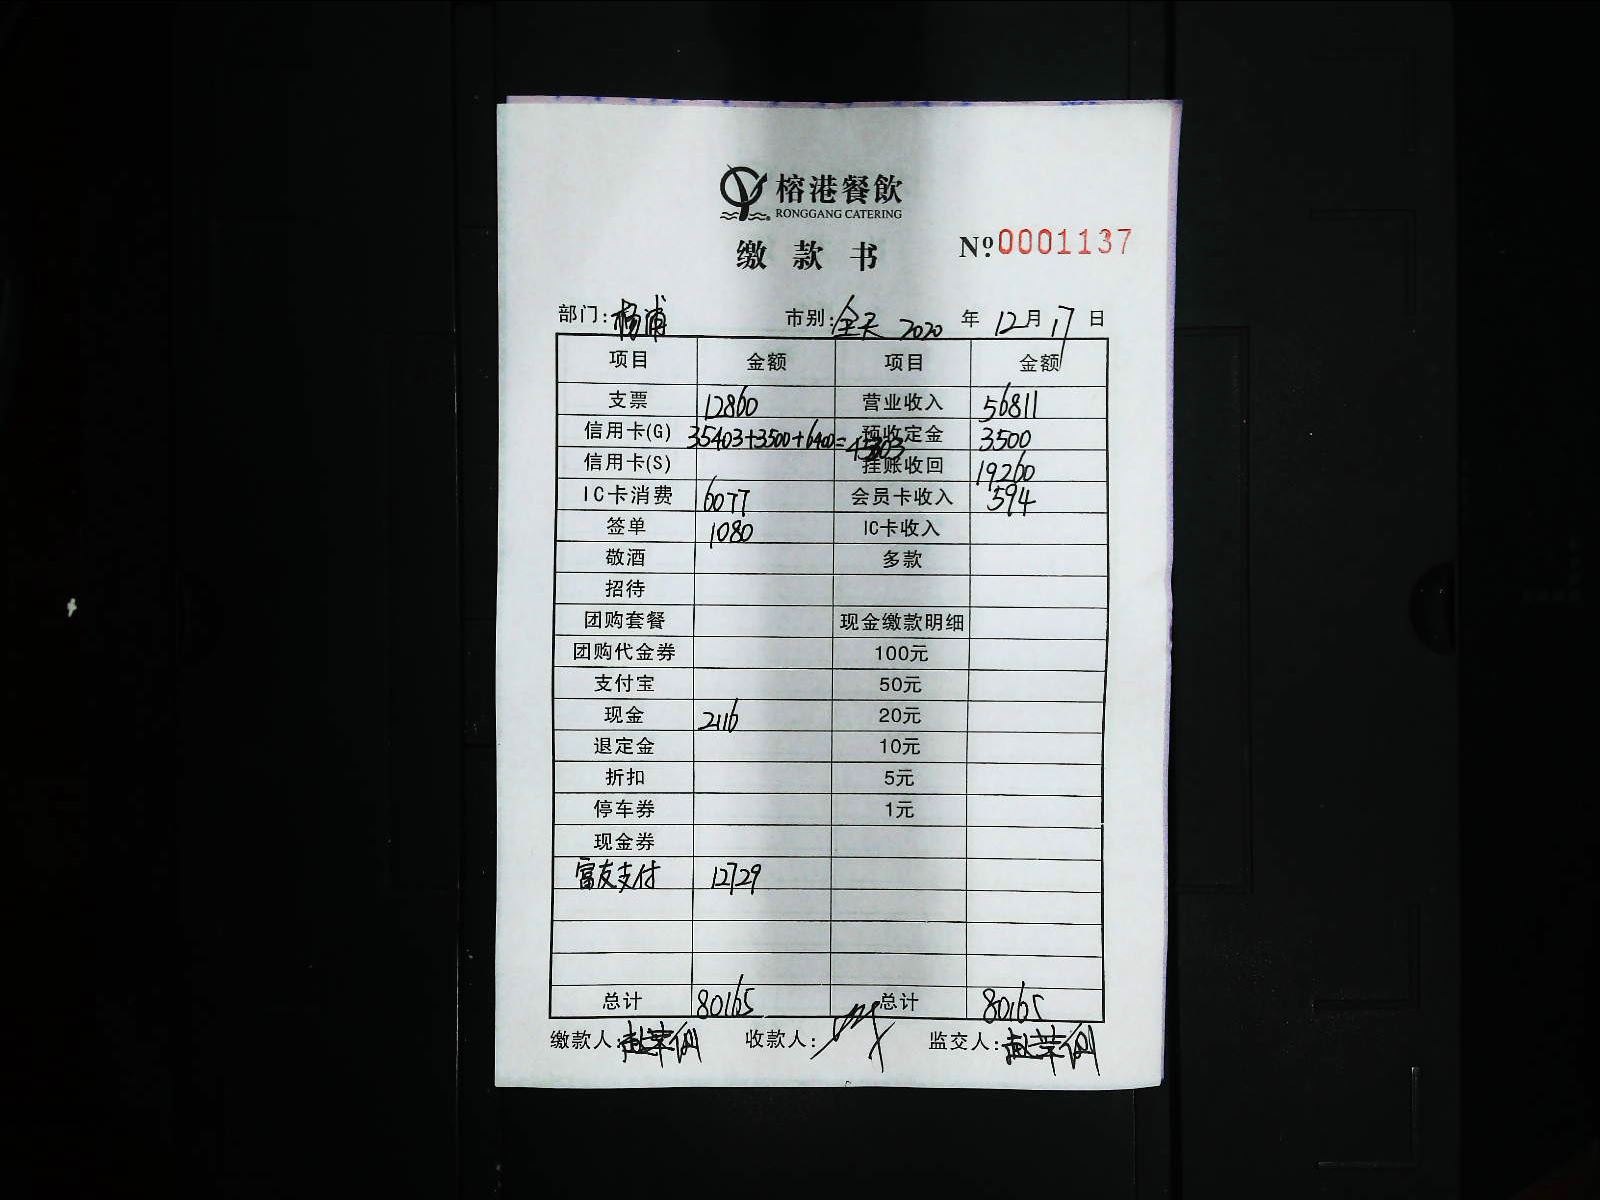 榕港餐飲
RONGGANG CATERING
缴款书
№0001137
部门:杨浦 市别:全天 2020年12月17日
项目 金额 项目 金额
支票 12860 营业收入 56811
信用卡(G) 35403+3500+6400=45303 预收定金 3500
信用卡(S) 挂账收回 19260
IC卡消费 6077 会员卡收入 594
签单 1080 IC卡收入
敬酒 多款
招待
团购套餐 现金缴款明细
团购代金券 100元
支付宝 50元
现金 2116 20元
退定金 10元
折扣 5元
停车券 1元
现金券
富友支付 12729
总计 80165 总计 80165
缴款人: 收款人: 监交人: